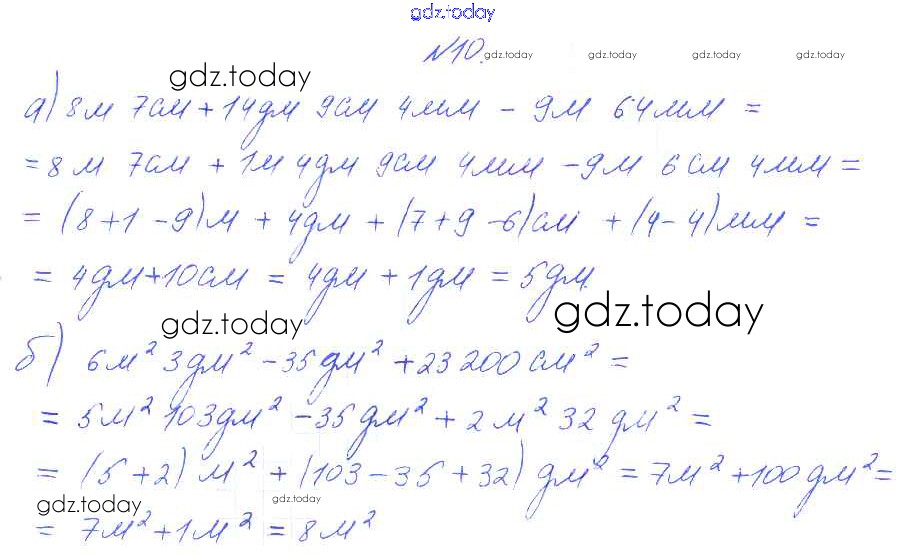 gdz.today
№10. gdz.today gdz.today gdz.today gdz.today
gdz.today
а) 8м 7см + 14дм 9см 4мм - 9м 64мм =
= 8м 7см + 1м 4дм 9см 4мм - 9м 6см 4мм =
= (8+1-9)м + 4дм + (7+9-6)см + (4-4)мм =
= 4дм+10см = 4дм + 1дм = 5дм.
gdz.today gdz.today
б) 6м² 3дм² - 35дм² + 23200см² =
= 5м² 103дм² - 35дм² + 2м² 32дм² =
= (5+2)м² + (103-35+32)дм² = 7м² + 100дм² =
gdz.today gdz.today gdz.today
= 7м² + 1м² = 8м²